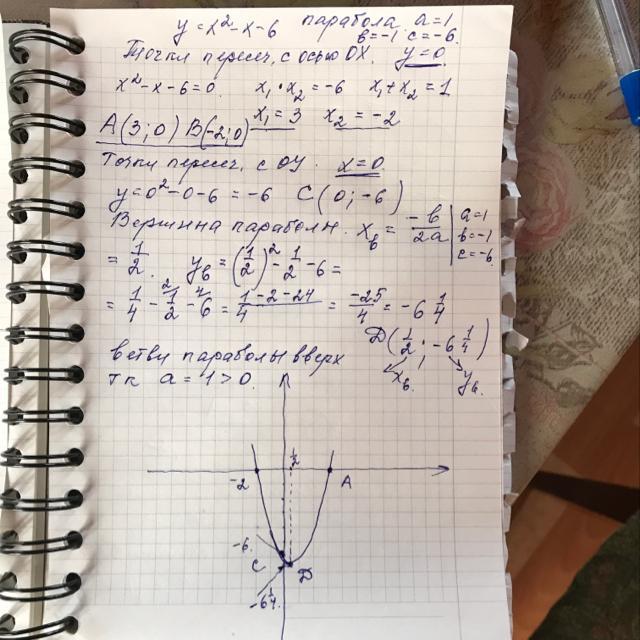 y = x² - x - 6 парабола a = 1
b = -1 c = -6.
Точки пересеч. с осью OX. y = 0
x² - x - 6 = 0. x₁ · x₂ = -6 x₁ + x₂ = 1
x₁ = 3 x₂ = -2
A(3; 0) B(-2; 0)
Точки пересеч. с OY. x = 0
y = 0² - 0 - 6 = -6 C(0; -6)
Вершина параболы. x_в = -b/2a | a = 1 b = -1 c = -6
= 1/2. y_в = (1/2)² - 1/2 - 6 =
= 1/4 - 1/2 - 6 = (1 - 2 - 24)/4 = -25/4 = -6 1/4
D(1/2; -6 1/4)
x_в. y_в.
ветви параболы вверх
тк a = 1 > 0.
1/2
-2 A
-6.
C D
-6 1/4.